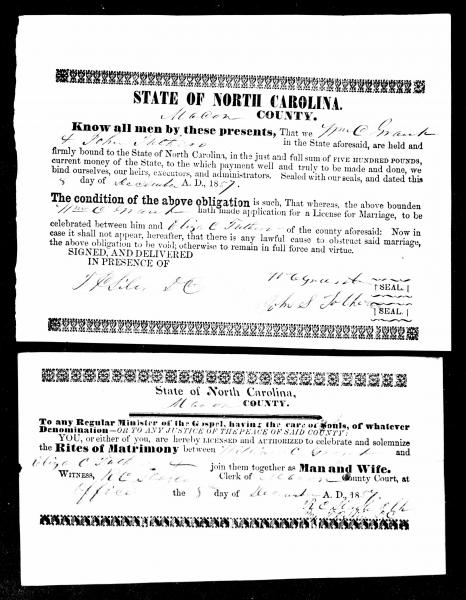 STATE OF NORTH CAROLINA.
Macon COUNTY.
Know all men by these presents, That we Wm C Grant
& John in the State aforesaid, are held and
firmly bound to the State of North Carolina, in the just and full sum of FIVE HUNDRED POUNDS,
current money of the State, to which payment well and truly to be made and done, we
bind ourselves, our heirs, executors, and administrators. Sealed with our seals, and dated this
8 day of December A. D., 1857.
The condition of the above obligation is such, That whereas, the above bounden
Wm C Grant hath made application for a License for Marriage, to be
celebrated between him and Eliza C of the county aforesaid: Now in
case it shall not appear, hereafter, that there is any lawful cause to obstruct said marriage,
the above obligation to be void; otherwise to remain in full force and virtue.
SIGNED, AND DELIVERED
IN PRESENCE OF
W C Grant [SEAL.]
John S [SEAL.]
State of North Carolina,
Macon COUNTY.
To any Regular Minister of the Gospel, having the care of Souls, of whatever
Denomination—OR TO ANY JUSTICE OF THE PEACE OF SAID COUNTY:
YOU, or either of you, are hereby LICENSED and AUTHORIZED to celebrate and solemnize
the Rites of Matrimony between William C Grant and
Eliza C join them together as Man and Wife.
WITNESS, Clerk of Macon County Court, at
Office the 8 day of December A. D., 1857.